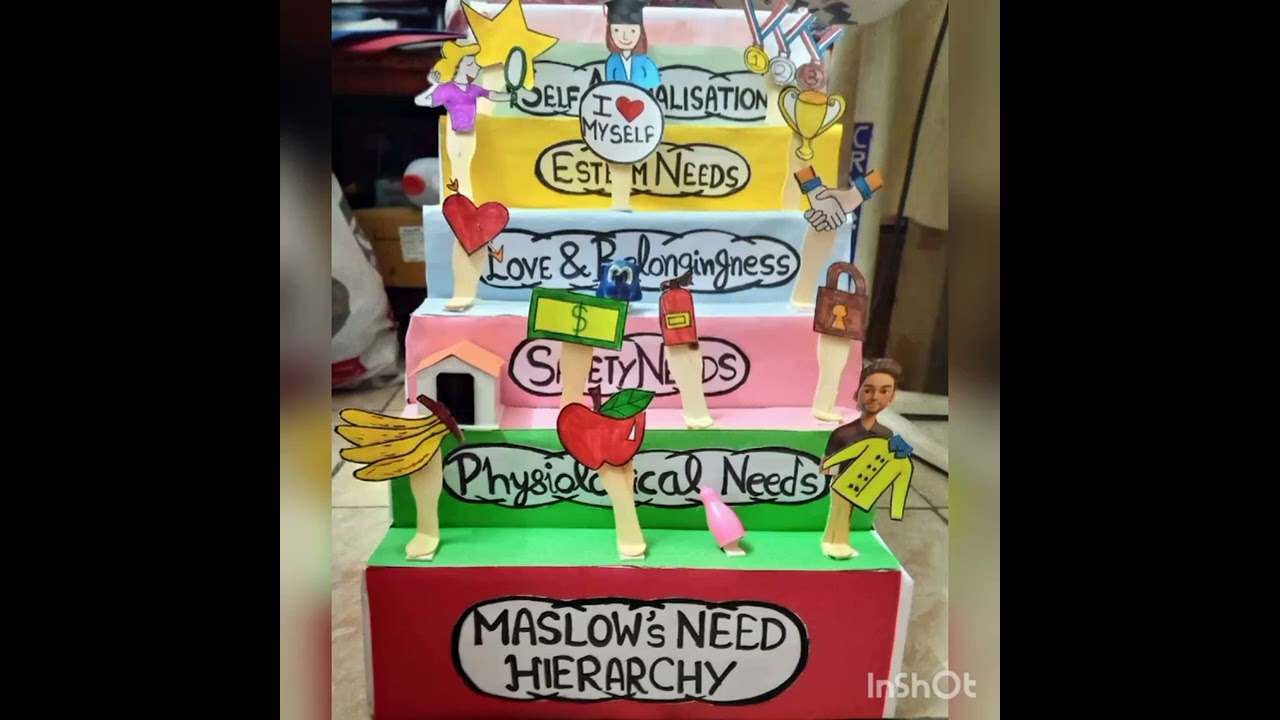 1 2 3
SELF ACTUALISATION
I ❤ MYSELF
ESTEEM NEEDS
LOVE & Belongingness
$
SAFETY NEEDS
Physiological Needs
MASLOW's NEED
HIERARCHY
InShOt